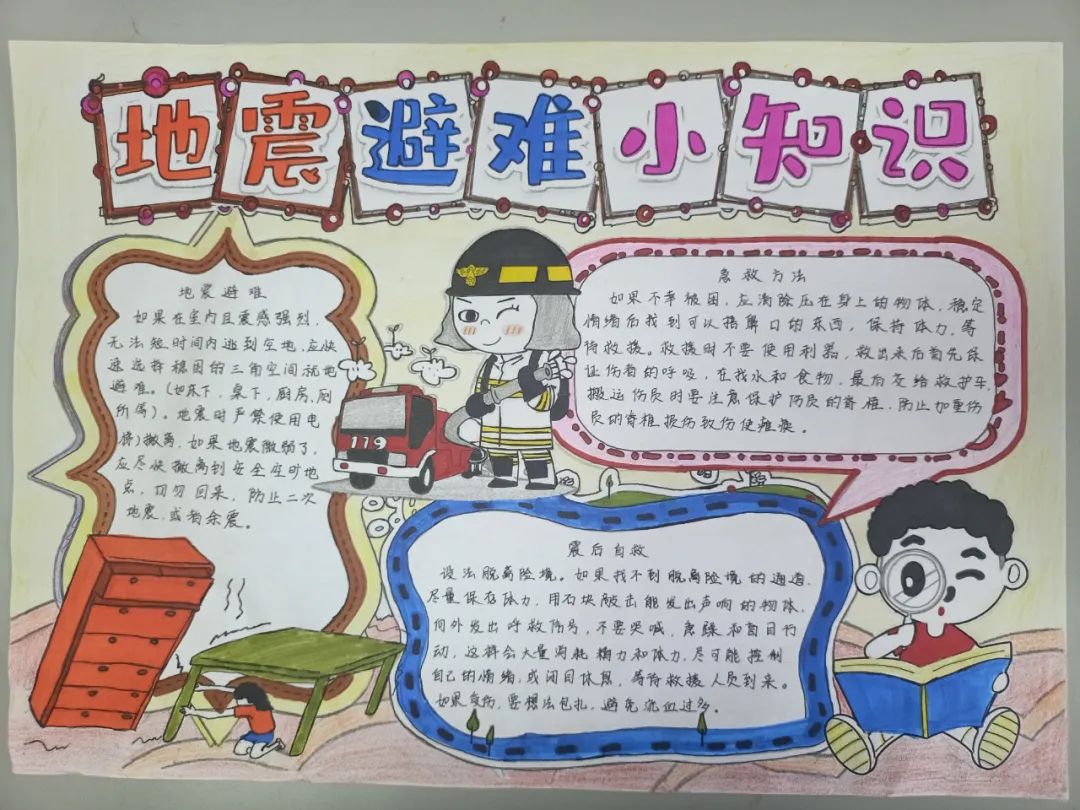 地震避难小知识
地震避难
如果在室内且震感强烈,
无法短时间内逃到空地,应快
速选择稳固的三角空间就地
避难。(如床下,桌下,厨房,厕
所等)。地震时严禁使用电
梯撤离,如果地震微弱了,
应尽快撤离到安全空旷地
点,切勿回来,防止二次
地震,或者余震。
119
急救方法
如果不幸被困,应清除压在身上的物体,稳定
情绪后找到可以捂鼻口的东西,保持体力,等
待救援。救援时不要使用利器,救出来后首先保
证伤者的呼吸,在找水和食物,最后交给救护车,
搬运伤员时要注意保护伤员的脊椎,防止加重伤
员的脊椎损伤致伤使瘫痪。
震后自救
设法脱离险境。如果找不到脱离险境的通道,
尽量保存体力,用石块敲击能发出声响的物体,
向外发出呼救信号,不要哭喊,急躁和盲目行
动,这样会大量消耗精力和体力,尽可能控制
自己的情绪,或闭目休息,等待救援人员到来。
如果受伤,要想法包扎,避免流血过多。